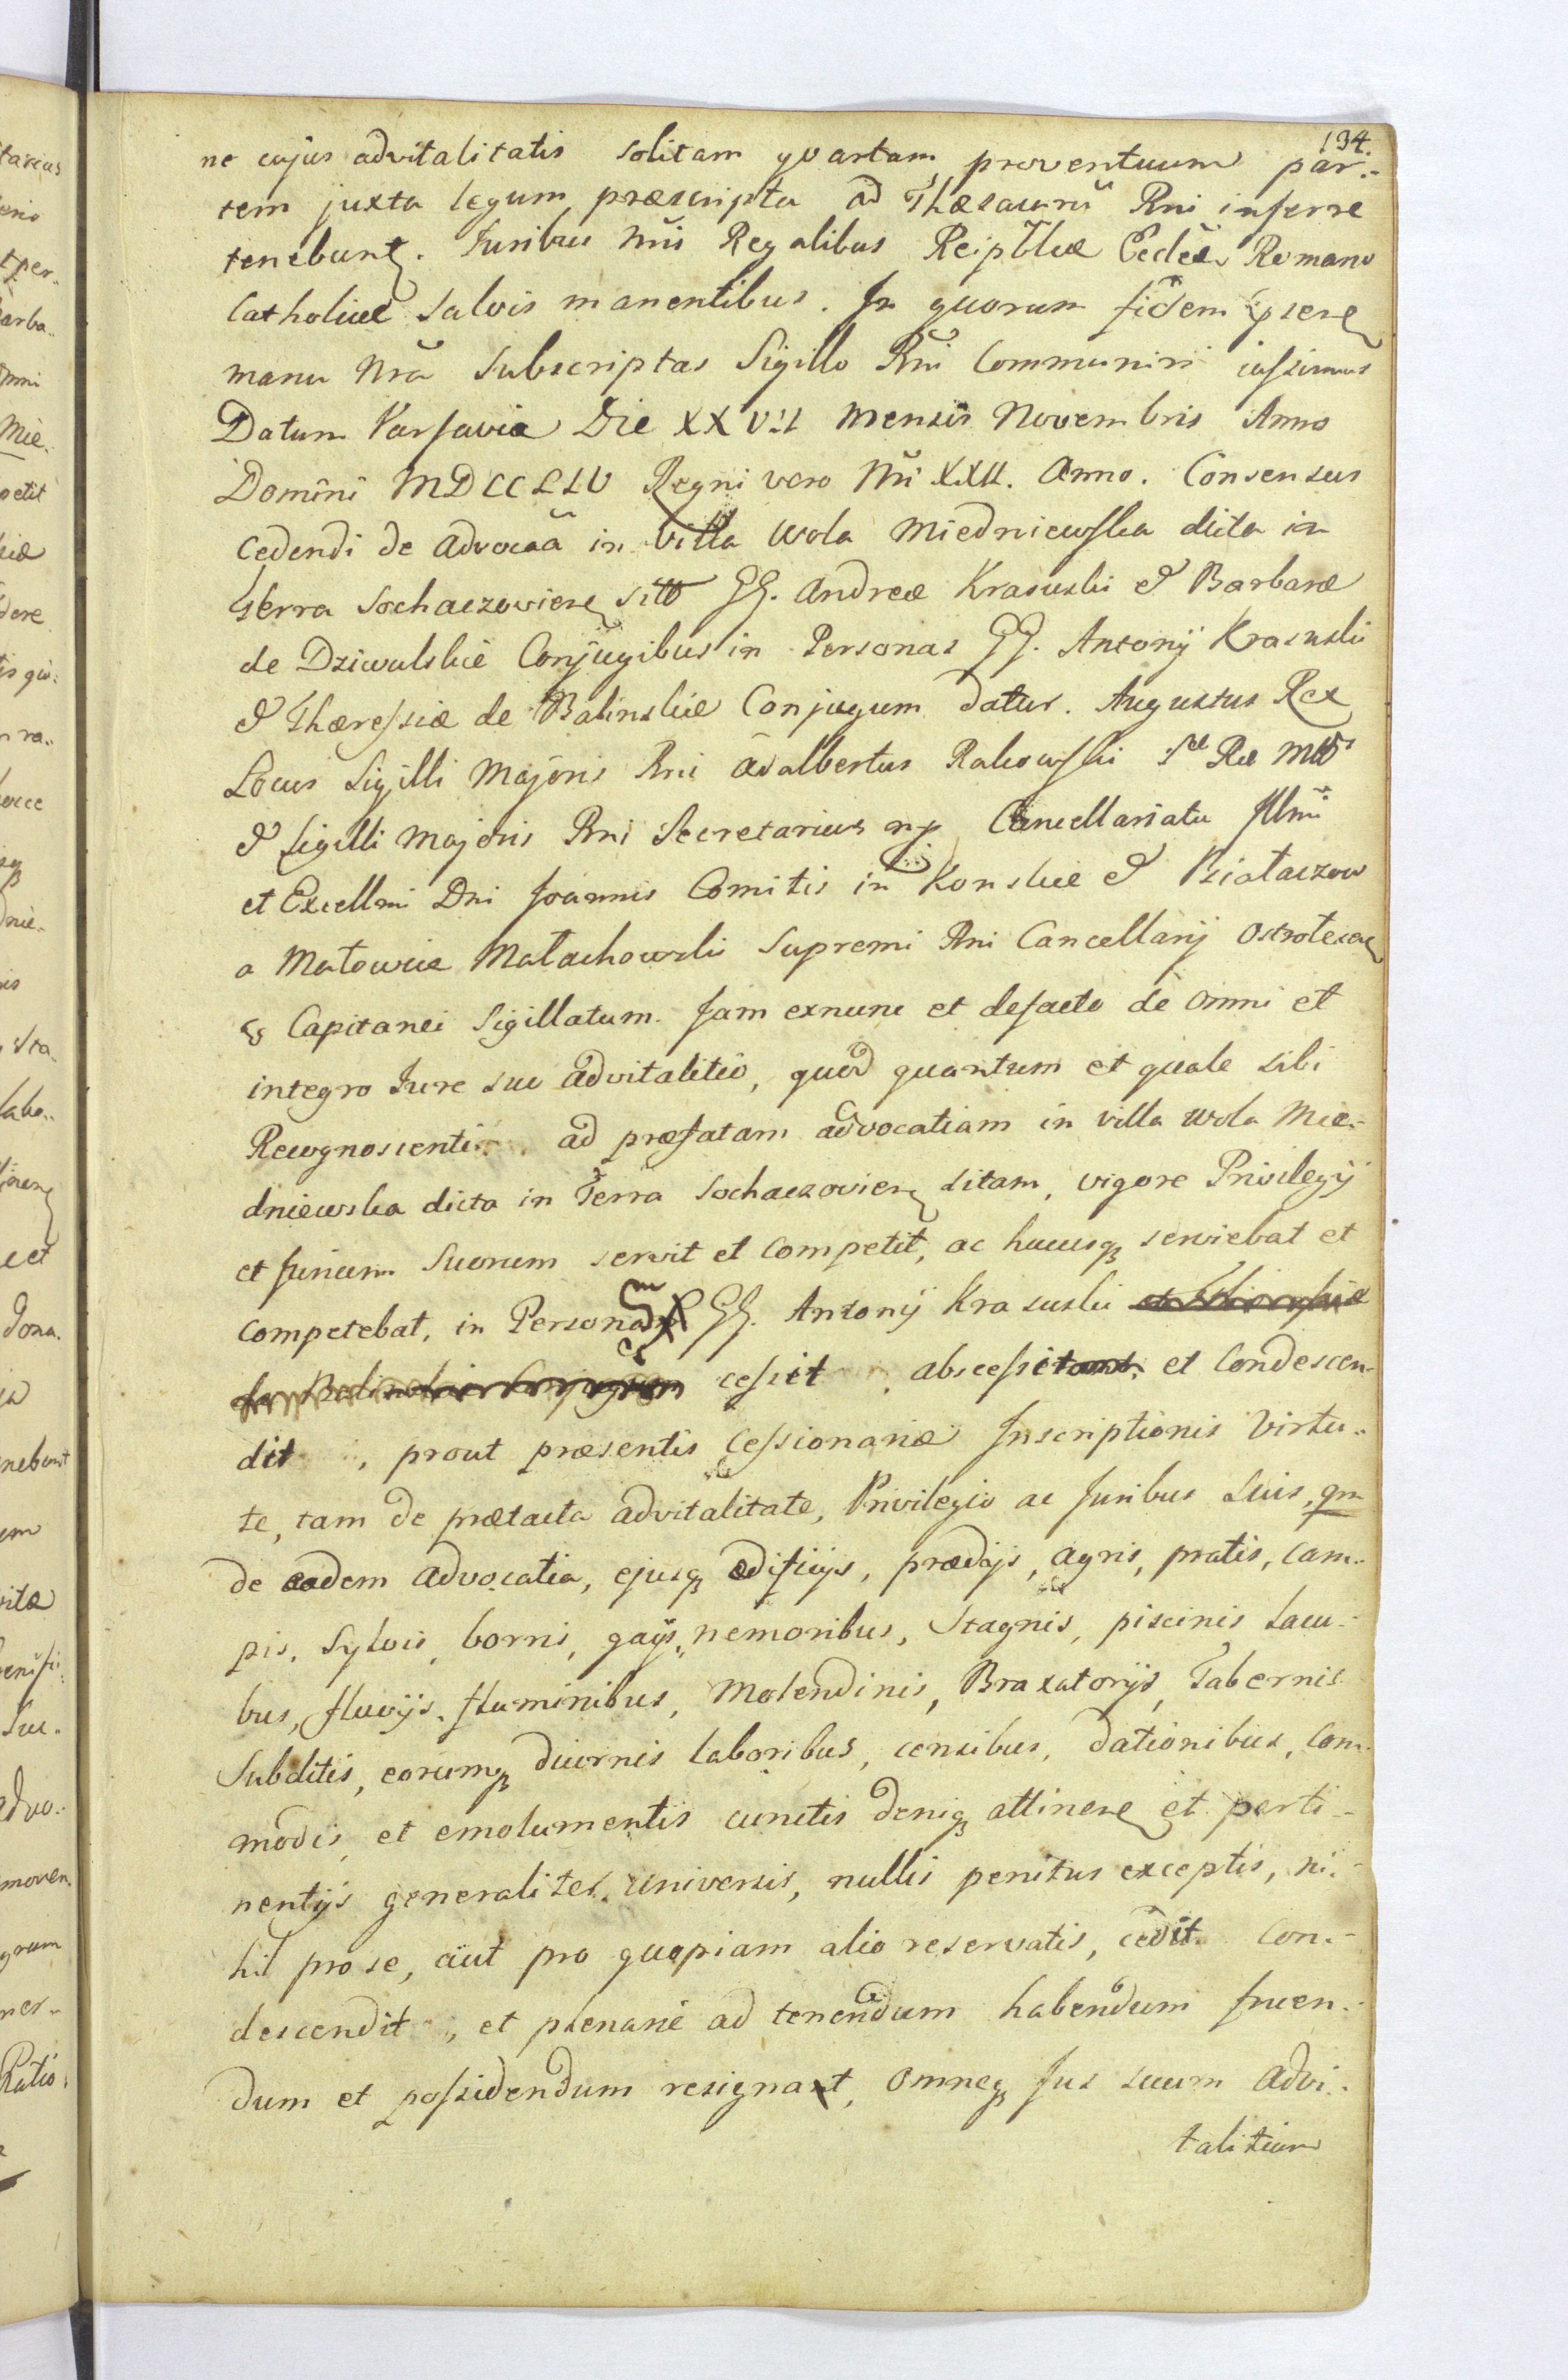 134.
ne cujus advitalitatis solitam quartam proventuum par-
tem juxta legum præscripta ad Thæsaurū Rni inferre
tenebunt. Juribus nr̄is Regalibus Reipblicæ Eccl̄æ Romano
Catholicæ salvis manentibus. In quorum fidem psent
manu Nr̄a subscriptas Sigillo Rn̄i Communiri jussimus
Datum Varsaviæ Die XXVII Mensis Novembris Anno
Domini MDCCLIV Regni vero Nr̄i XXII. Anno. Consensus
cedendi de Advocāa in villa Wola Miedniewska dicta in
terra Sochaczovien sito GG. Andreæ Krasuski & Barbaræ
de Dziwulskie Conjugibus in Personas GG. Antonij Krasuski
& Thæressiæ de Balinskie Conjugum datus. Augustus Rex
Locus Sigilli Majoris Rni Adalbertus Rakowski Sæ Ræ Mtis
& Sigilli Majoris Rni Secretarius mp Cancellariatu Illmi
et Excellmi Dni Joannis Comitis in Konskie & Bialaczow
a Malowice Małachowski Supremi Rni Cancellarij Ostrolecen
& Capitanei Sigillatum. Jam exnunc et defacto de omni et
integro Jure suo advitalitio, quod quantum et quale sibi
Recognoscenti ad præfatam advocatiam in villa Wola Mie-
dniewska dicta in Terra Sochaczovien sitam, vigore Privilegij
et Jurium Suorum servit et competit, ac hucusq serviebat et
competebat, in Personam GG. Antonij Krasuski
cessit abscessit et Condescen-
dit, prout præsentis Cessionariæ Inscriptionis Virtu-
te, tam de prætacta advitalitate, Privilegio ac Juribus suis, qm
de eadem Advocatia, ejusq ædificijs, prædijs, agris, pratis, cam-
pis, Sylvis, borris, gaijs, nemoribus, Stagnis, piscinis lacu-
bus, fluvijs, fluminibus, Molendinis, Braxatorijs, Tabernis
Subditis, eorumq diurnis laboribus, censibus, dationibus, com-
modis, et emolumentis cunctis deniq attinen et perti-
nentijs generaliter universis, nullis penitus exceptis, ni-
hil pro se, aut pro quopiam alio reservatis, cedit con-
descendit, et plenarie ad tenendum habendum fruen-
dum et possidendum resignat, omneq Jus suum advi-
talitium